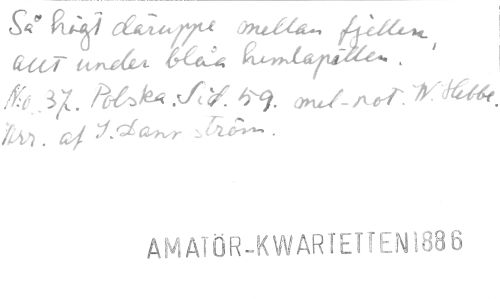 Så högt däruppe mellan fjellen,
allt under blåa himlapellen.
No. 37. Polska. Sid. 59. mel-not. W. Hebbe.
Arr. af I. Dannström.
AMATÖR-KWARTETTEN 1886